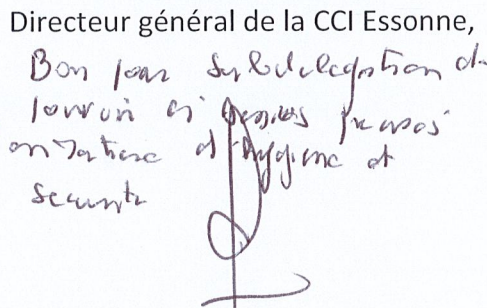 Directeur général de la CCI Essonne,
Bon pour subdelegation de
pouvoir ci dessus precisés
en matiere d'hygiene et
securite